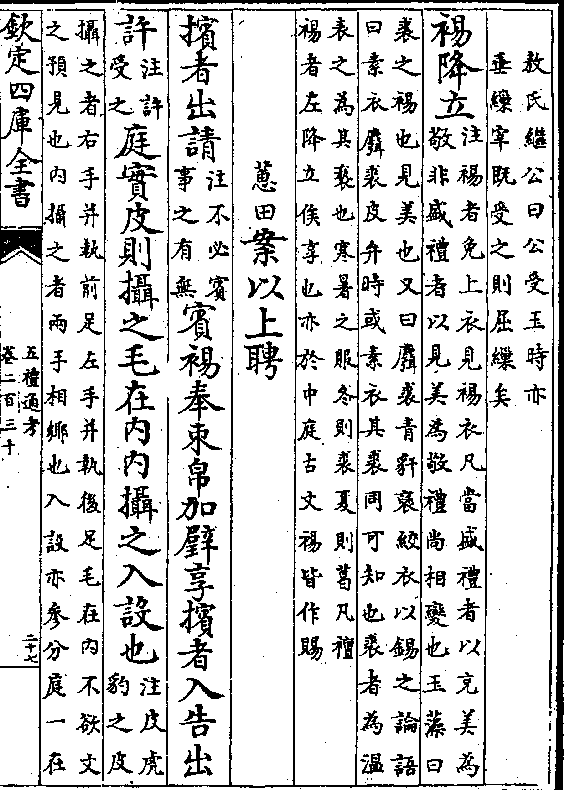 敖氏繼公曰公受玉時亦
垂繅宰既受之則屈繅矣
裼降立注裼者免上衣見裼衣凡當盛禮者以充美為
敬非盛禮者以見美為敬禮尚相變也玉藻曰
裘之裼也見美也又曰麛裘青豻褎絞衣以錫之論語
曰素衣麛裘皮弁時或素衣其裘同可知也裘者為温
表之為其褻也寒暑之服冬則裘夏則葛凡襢
裼者左降立俟享也亦於中庭古文裼皆作賜
蕙田案以上聘
擯者出請注不必賓事之有無賓裼奉束帛加璧享擯者入告出
許注許受之庭實皮則攝之毛在内内攝之入設也注皮虎豹之皮
攝之者右手并執前足左手并執後足毛在内不欲文
之預見也内攝之者兩手相鄉也入設亦參分庭一在
欽定四庫全書
五禮通考
卷二百三十
二十七